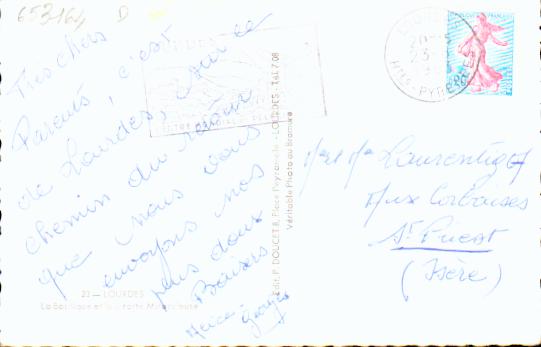 653164 D
Tres chers
Parents, c'est
de Lourdes, sur le
chemin du retour
que nous vous
envoyons nos
plus doux
Baisers
Georges
23 — LOURDES
La Basilique et la Grotte Miraculeuse
Edit. P. DOUCET 8, Place Peyramale - LOURDES - Tél. 7.08
Véritable Photo au Bromure
LOURDES
Htes PYRENEES
Aux Corbaises
St Priest
(Isère)